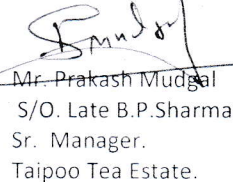 Mr. Prakash Mudgal
S/O. Late B.P.Sharma
Sr. Manager.
Taipoo Tea Estate.